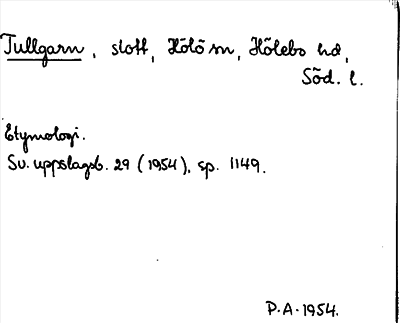 Tullgarn, slott, Hölö sn, Hölebo hd,
Söd. l.
Etymologi.
Sv. uppslagsb. 29 (1954), sp. 1149.
P.A. 1954.